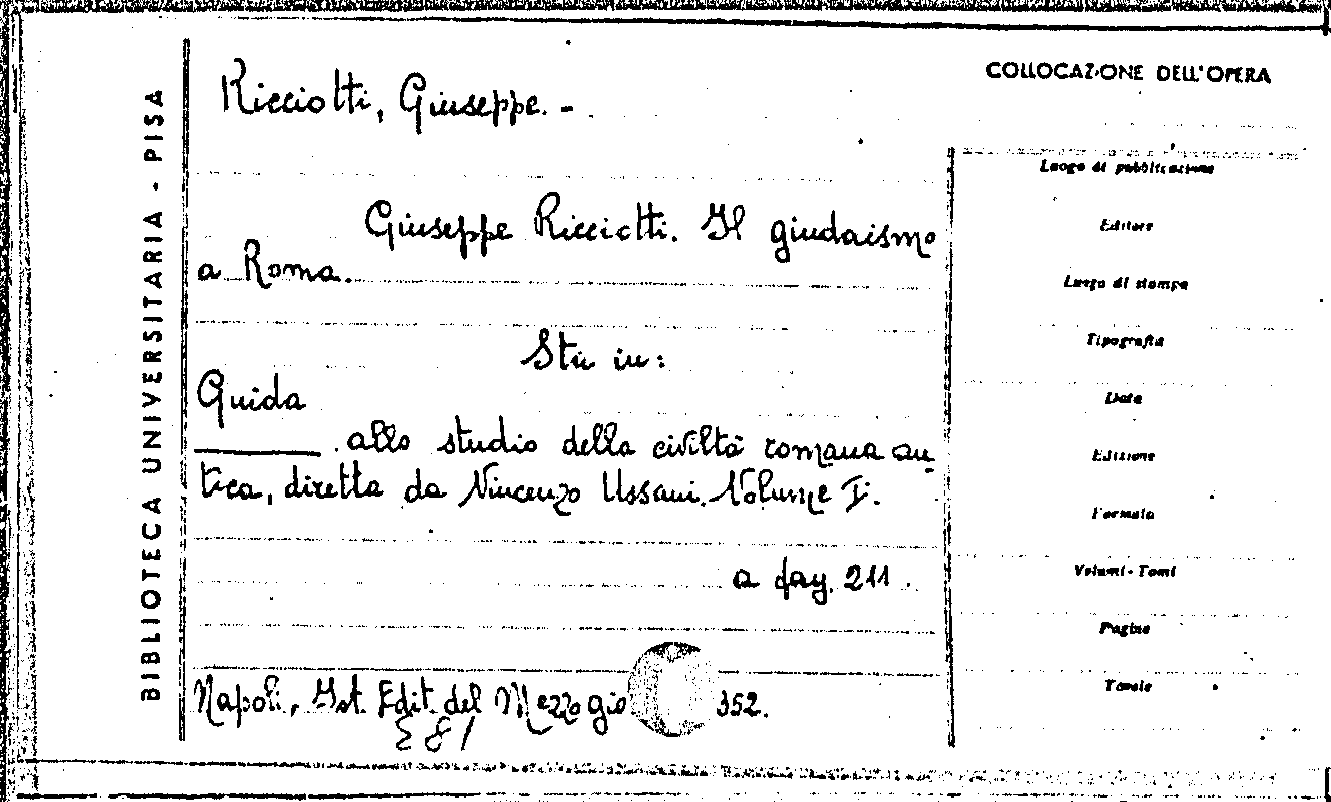 BIBLIOTECA UNIVERSITARIA - PISA
Ricciotti, Giuseppe. -
Giuseppe Ricciotti. Il giudaismo
a Roma.
Sta in:
Guida
allo studio della civiltà romana an
tica, diretta da Vincenzo Ussani. Volume I.
a pag. 211.
Napoli, Ist. Edit. del Mezzogio 352.
E 81
COLLOCAZIONE DELL'OPERA
Luogo di pubblicazione
Editore
Luogo di stampa
Tipografia
Data
Edizione
Formato
Volumi - Tomi
Pagine
Tavole